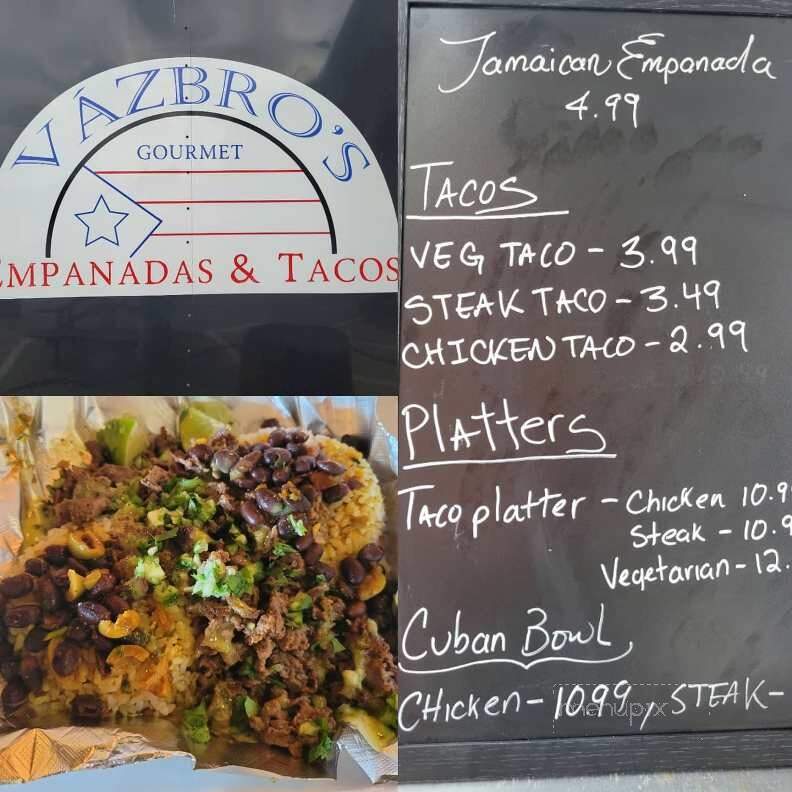 VÁZBRO'S
GOURMET
EMPANADAS & TACOS
Jamaican Empanada
4.99
TACOS
VEG TACO - 3.99
STEAK TACO - 3.49
CHICKEN TACO - 2.99
Platters
TACO platter - Chicken 10.9
Steak - 10.9
Vegetarian - 12.
Cuban Bowl
CHicken - 1099, STEAK -
menupix